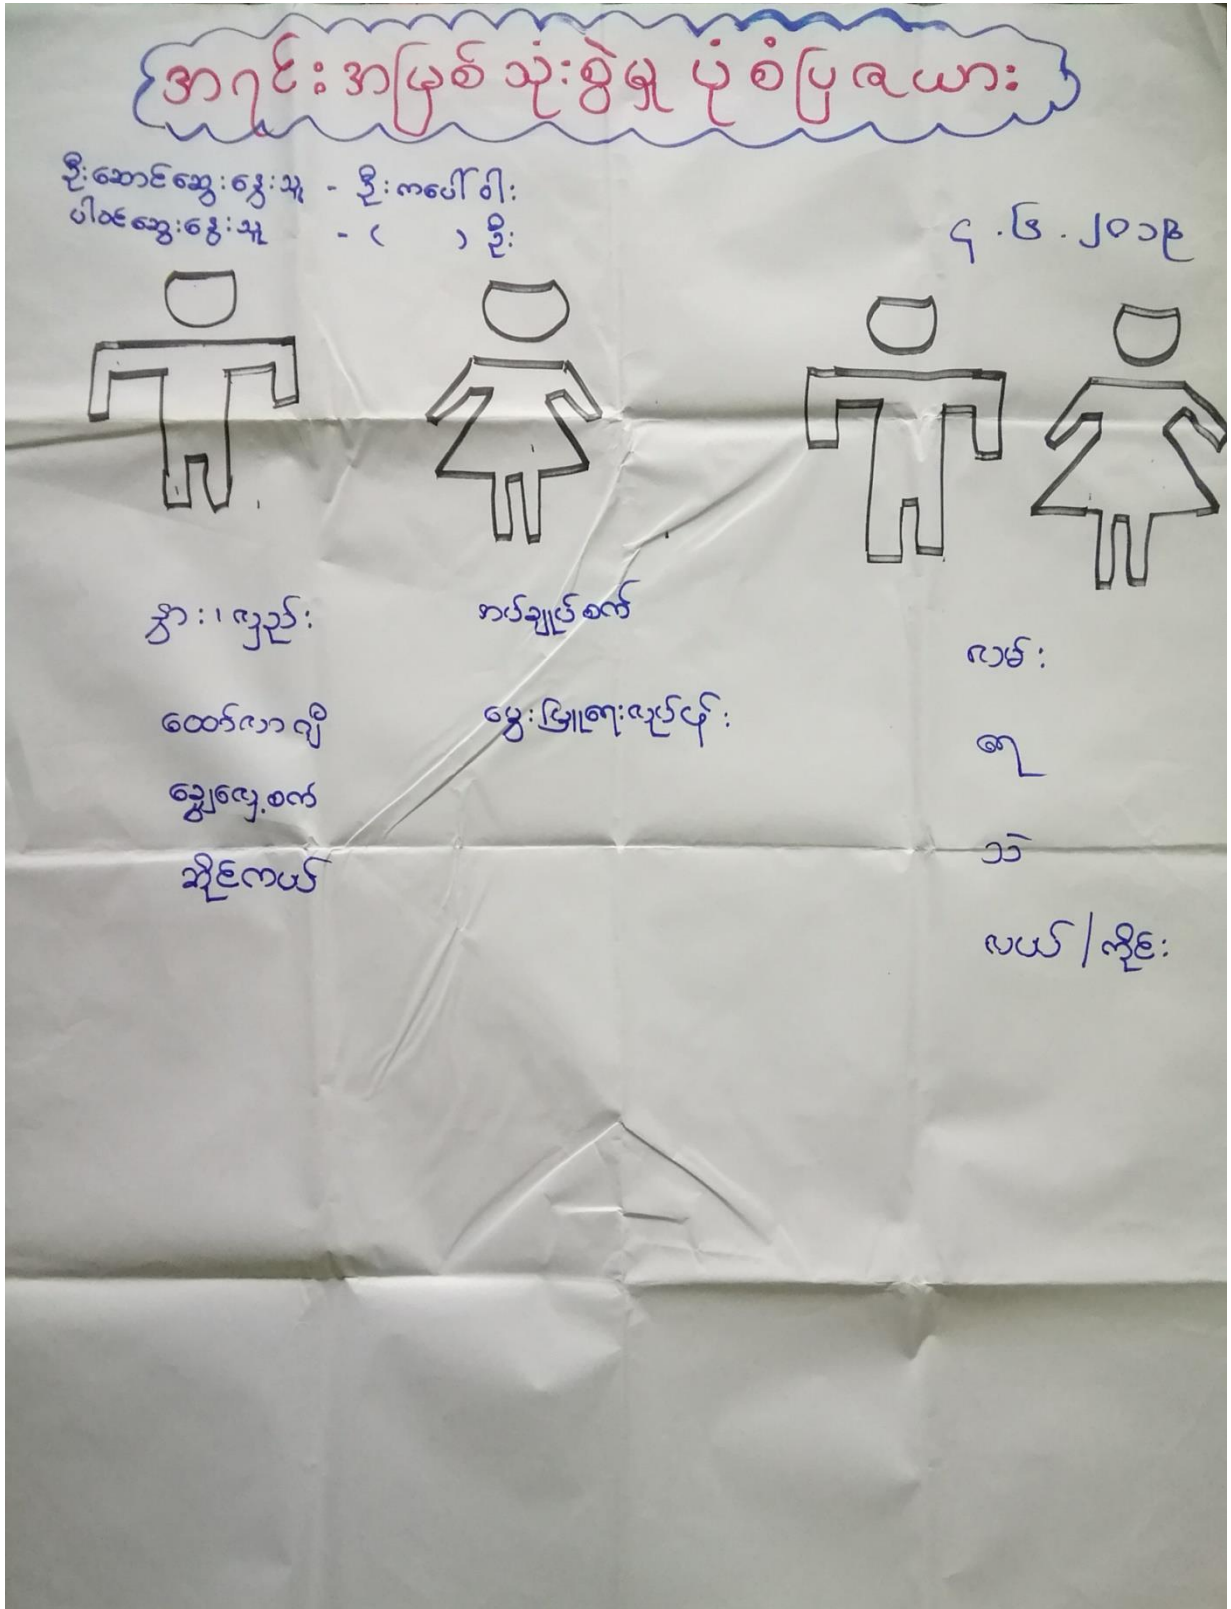 အရင်းအမြစ်သုံးစွဲမှု ပုံစံပြဇယား
ဦးဆောင်ဆွေးနွေးသူ - ဦးကပေါ်ဝါး
ပါဝင်ဆွေးနွေးသူ - ( ) ဦး
၄.၆.၂၀၁၉
နွား၊ လှည်း
ထော်လာဂျီ
ချွေလှေ့စက်
ဆိုင်ကယ်
အပ်ချုပ်စက်
မွေးမြူရေးလုပ်ငန်း
လမ်း
ရေ
သဲ
လယ်/ကိုင်း